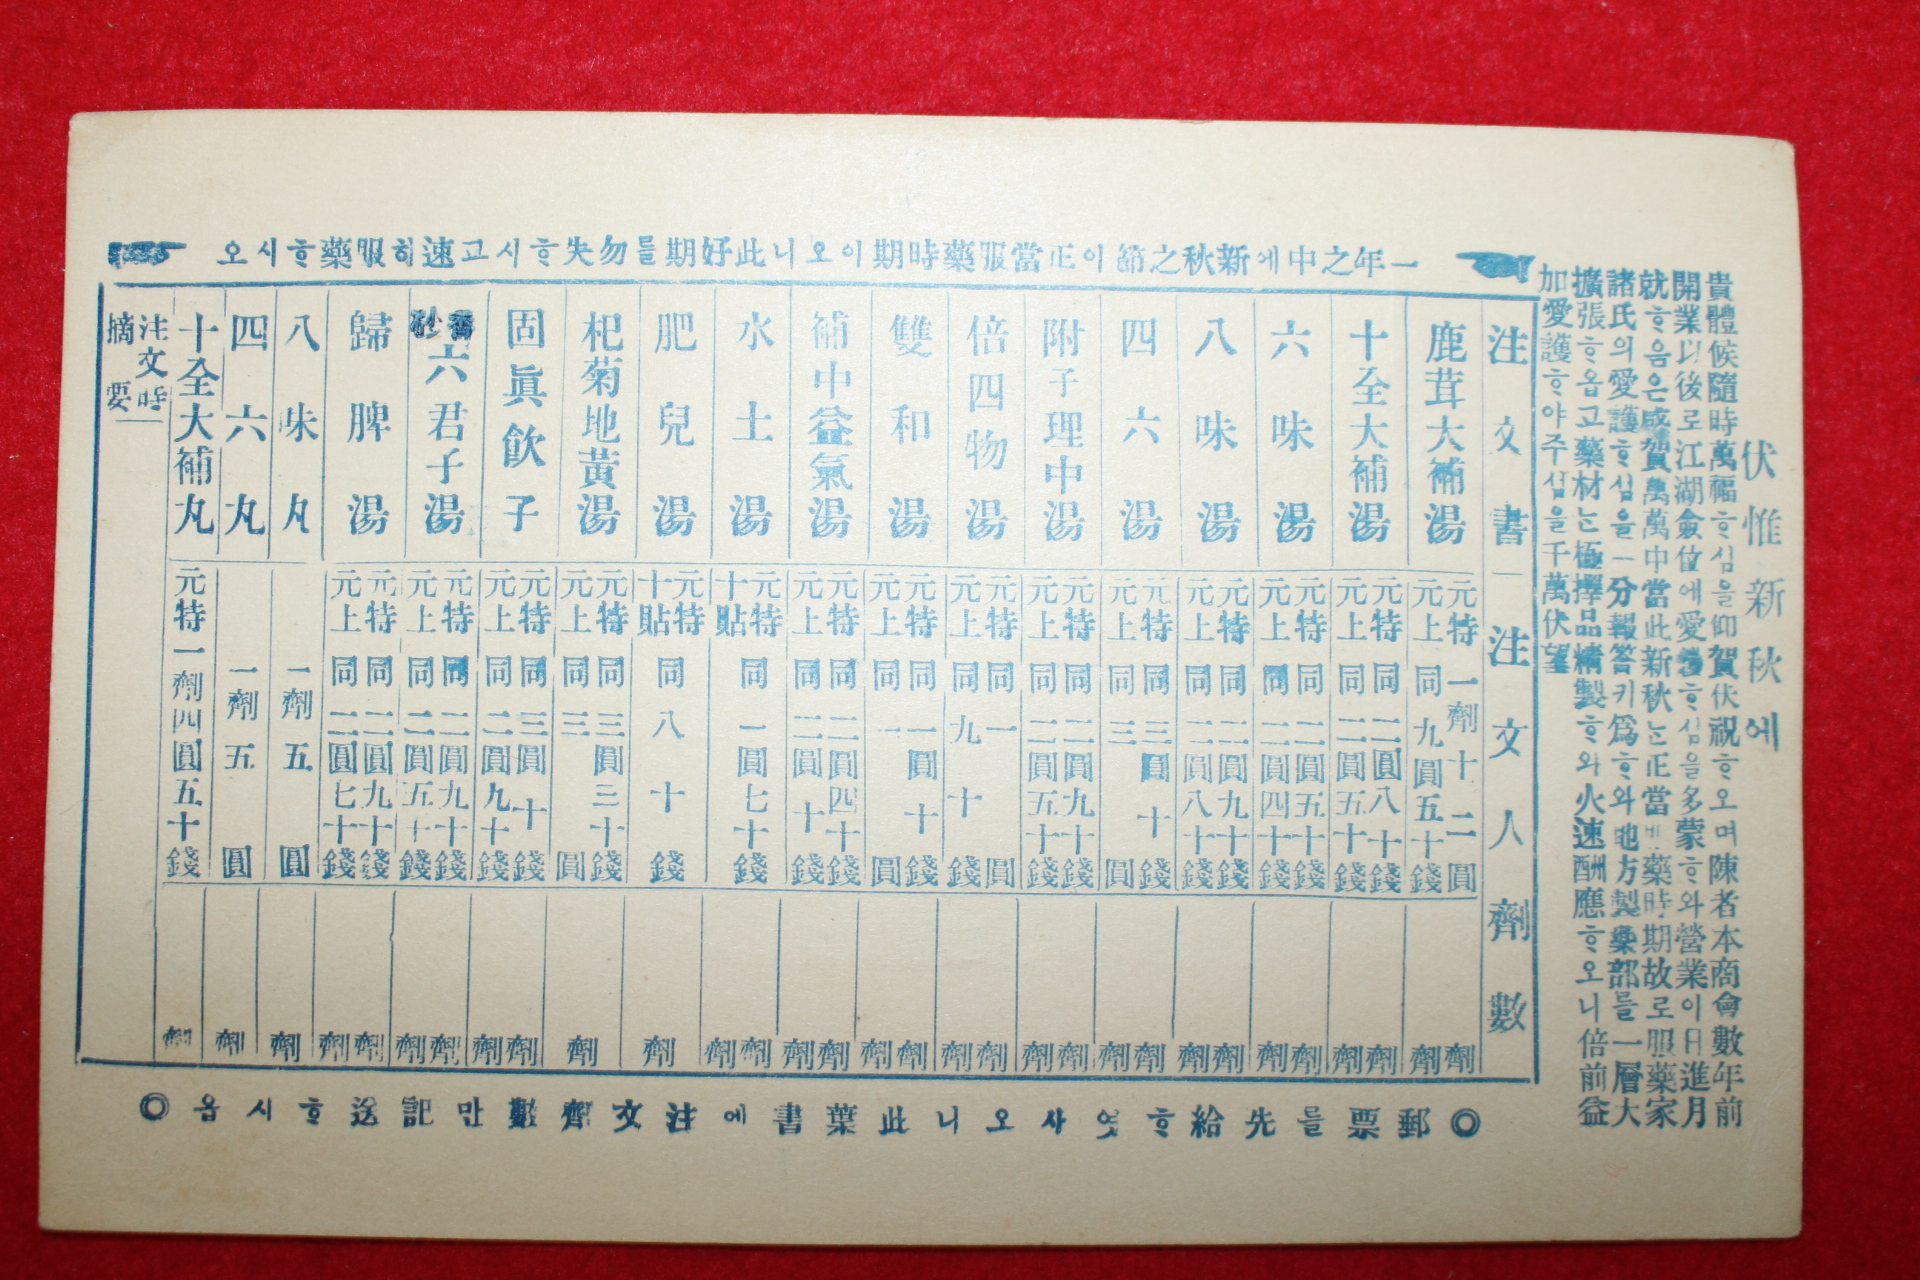 伏惟新秋에
貴體候隨時萬福ᄒᆞ심을仰賀伏祝ᄒᆞ오며陳者本商會數年前
開業以後로江湖僉位에愛護ᄒᆞ심을多蒙ᄒᆞ와營業이日進月
就ᄒᆞ음은感賀萬萬中當此新秋ᄂᆞᆫ正當 藥時期故로服藥家
諸氏의愛護ᄒᆞ심을一分報答키爲ᄒᆞ와地方製藥部를一層大
擴張ᄒᆞ옵고藥材ᄂᆞᆫ極擇品精製ᄒᆞ와火速酬應ᄒᆞ오니倍前益
加愛護ᄒᆞ야주심을千萬伏望
一年之中에新秋之節이正當服藥時期이오니此好期를勿失ᄒᆞ시고速히服藥ᄒᆞ시오
注文書 注文人劑數
鹿茸大補湯 元特 一劑十二圓 元上 同九圓五十錢 劑 劑
十全大補湯 元特 同二圓八十錢 元上 同二圓五十錢 劑 劑
六味湯 元特 同二圓五十錢 元上 同二圓四十錢 劑 劑
八味湯 元特 同二圓九十錢 元上 同二圓八十錢 劑 劑
四六湯 元特 同三圓十錢 元上 同三圓 劑 劑
附子理中湯 元特 同二圓九十錢 元上 同二圓五十錢 劑 劑
倍四物湯 元特 同一圓 元上 同九十錢 劑 劑
雙和湯 元特 同一圓十錢 元上 同一圓 劑 劑
補中益氣湯 元特 同二圓四十錢 元上 同二圓十錢 劑 劑
水土湯 元特 十貼 同一圓七十錢 劑 劑
肥兒湯 元特 十貼 同八十錢 劑
杞菊地黃湯 元特 同三圓三十錢 元上 同三圓 劑
固眞飮子 元特 同三圓十錢 元上 同二圓九十錢 劑 劑
香砂六君子湯 元特 同二圓九十錢 元上 同二圓五十錢 劑 劑
歸脾湯 元特 同二圓九十錢 元上 同二圓七十錢 劑 劑
八味丸 一劑五圓 劑
四六丸 一劑五圓 劑
十全大補丸 元特 一劑四圓五十錢 劑
注文時
摘要
◎郵票를先給ᄒᆞ엿사오니此葉書에注文劑數만記送ᄒᆞ시옵◎